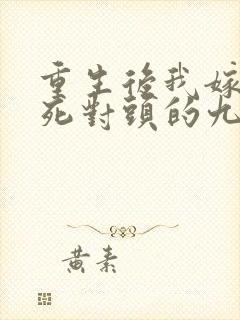 重生後我嫁
死對頭的九
黃素